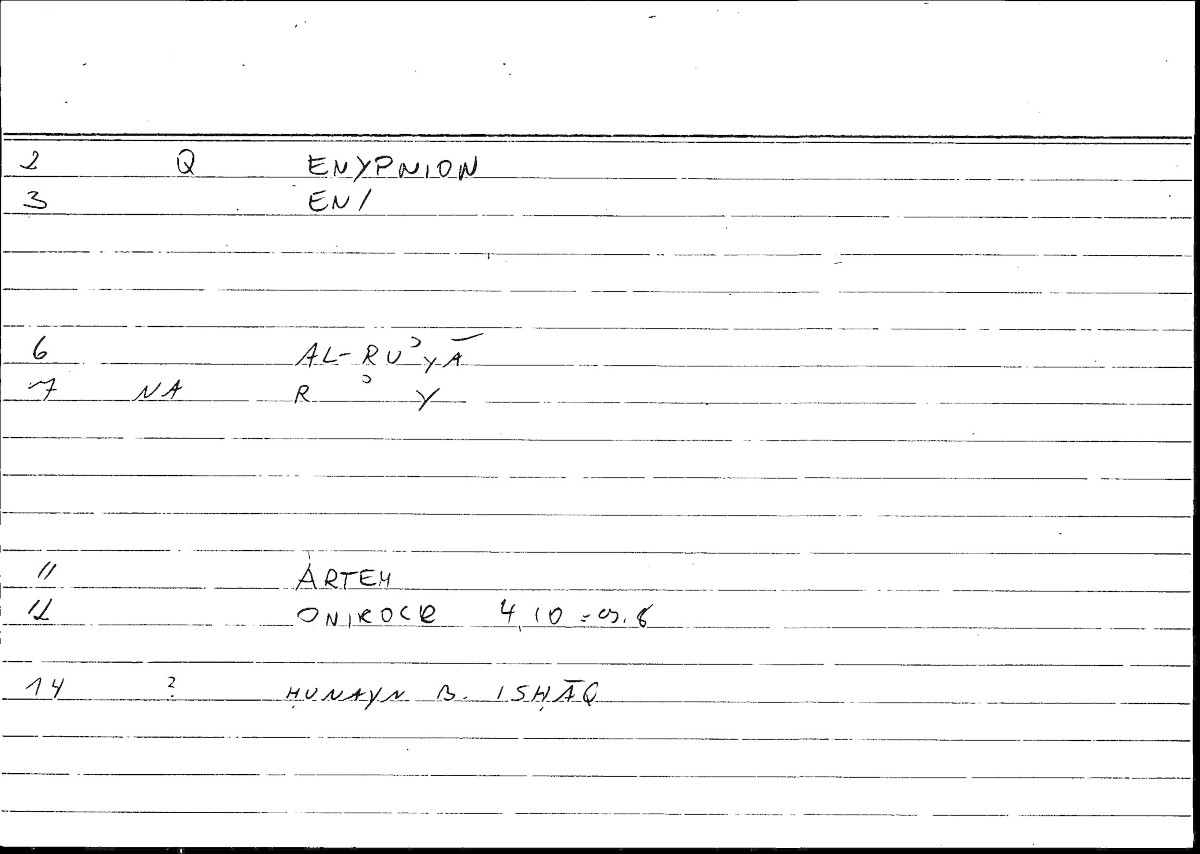 2 Q ENYPNION
3 EN/
6 AL-RUʾYĀ
7 NA R ʾ Y
11 ARTEM
12 ONIROCR 4,10
14 ? ḤUNAYN B. ISḤĀQ